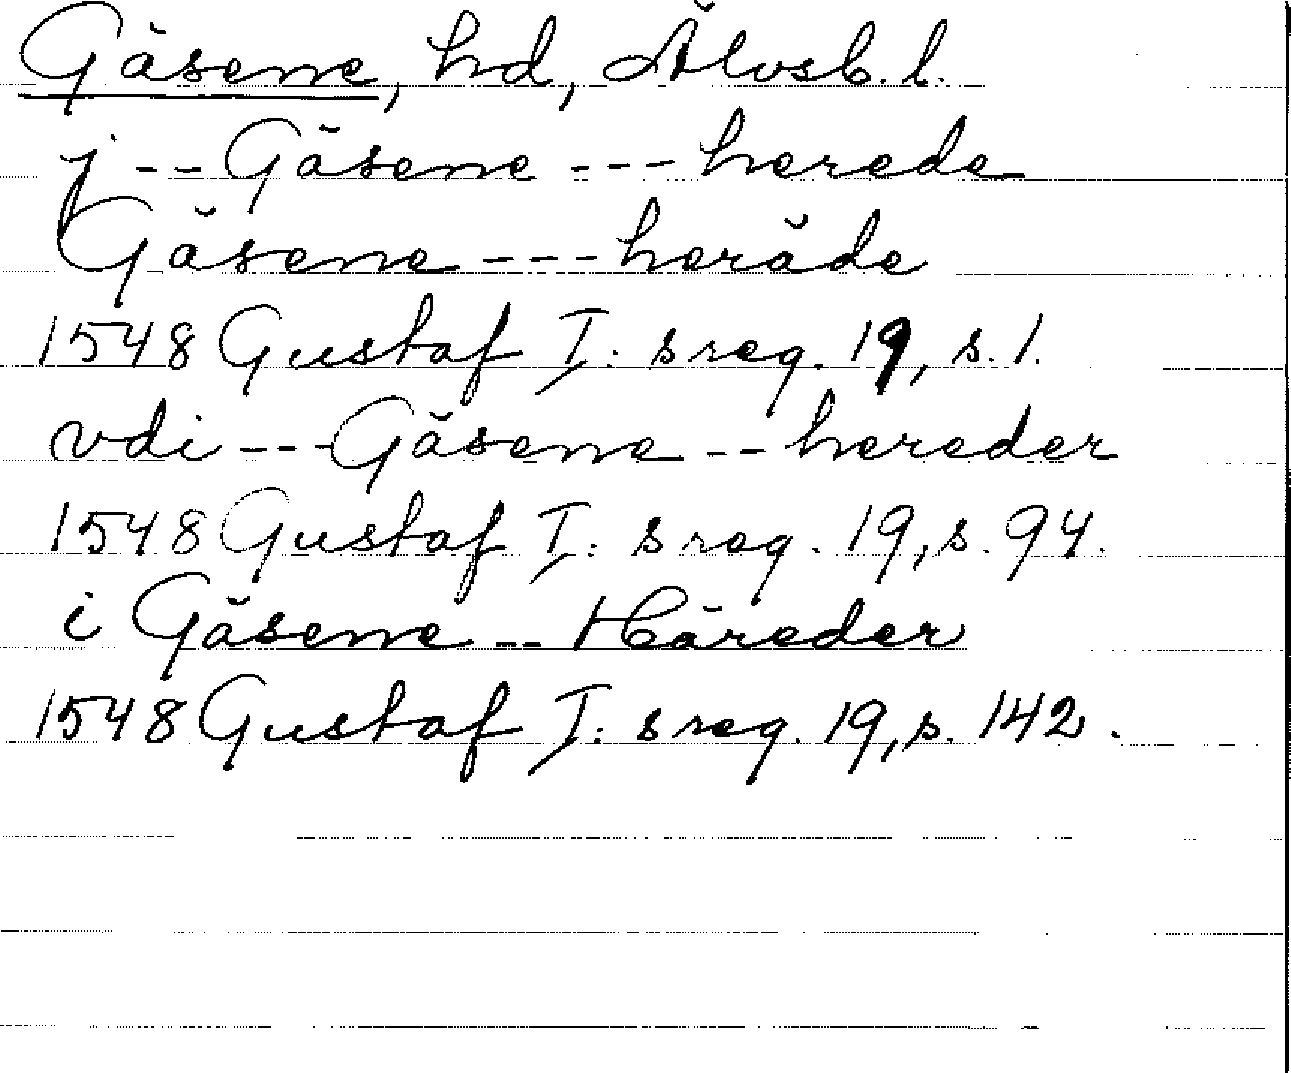 Gäsene, hd, Älvsb. l.
j -- Gäsene --- herede
Gäsene --- heräde
1548 Gustaf I: s reg. 19, s. 1.
vdi --- Gäsene -- hereder
1548 Gustaf I: s reg. 19, s. 94.
i Gäsene -- Häreder
1548 Gustaf I: s reg. 19, s. 142.